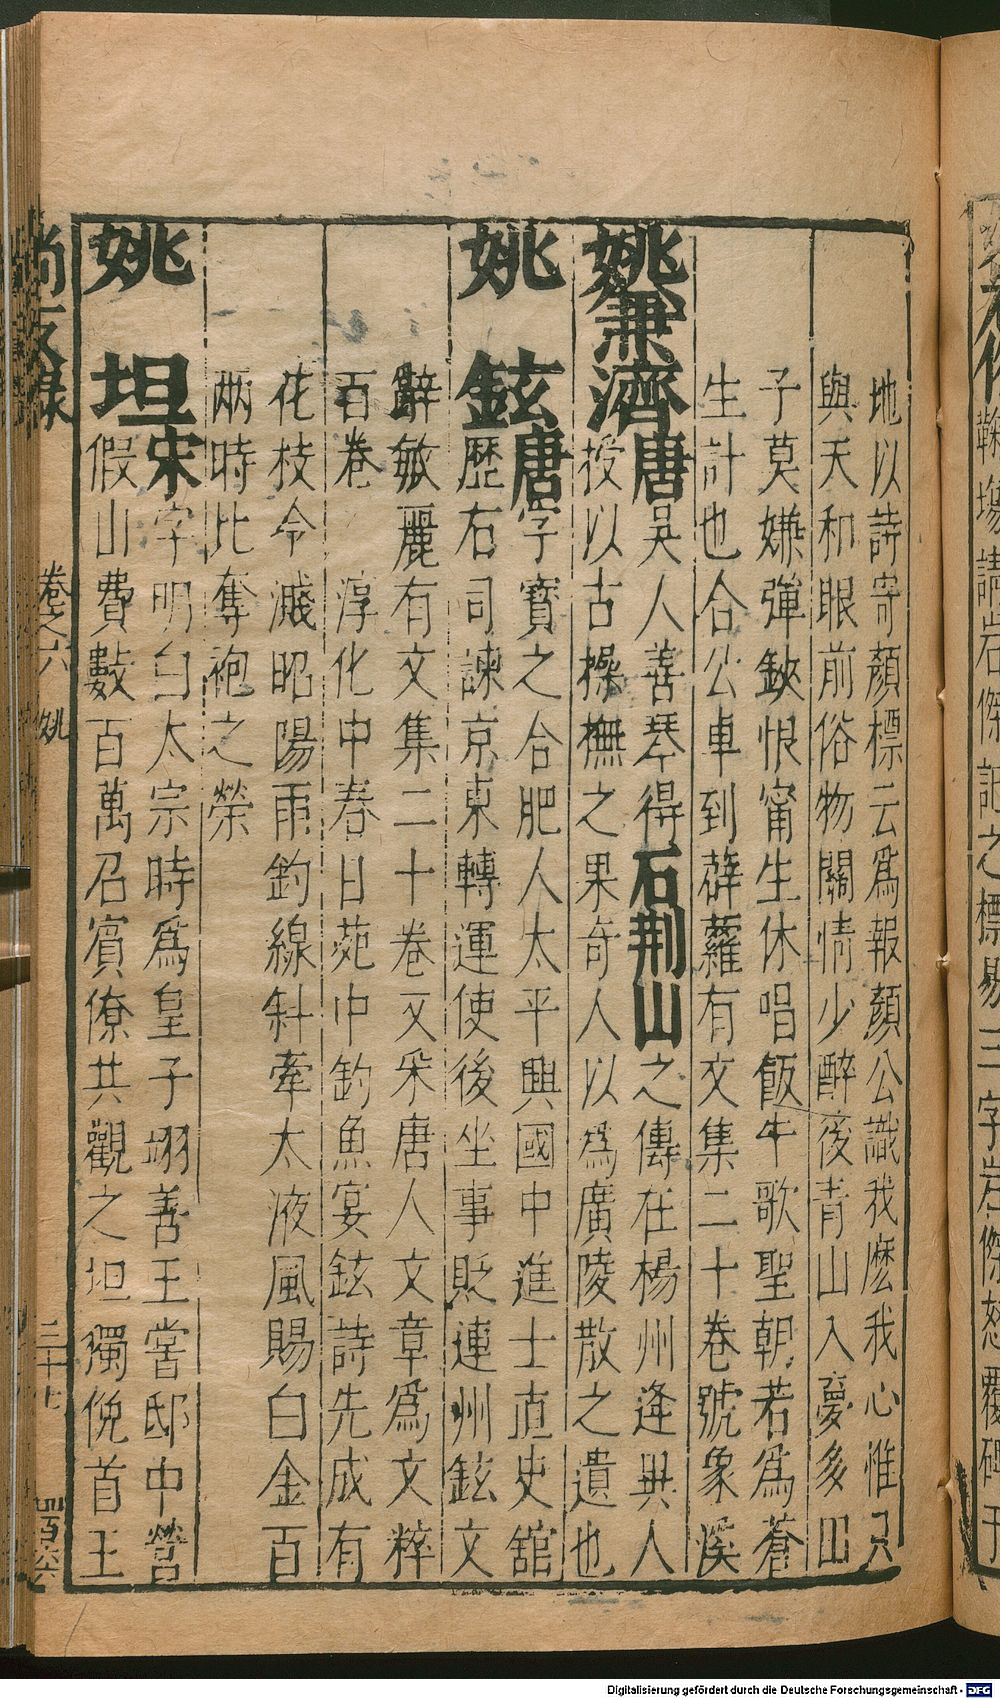 地以詩寄顏標云為報顏公識我麽我心惟只
與天和眼前俗物關情少醉後青山入夢多田
子莫嫌彈鋏恨甯生休唱飯牛歌聖朝若為蒼
生計也合公車到薜蘿有文集二十卷號象溪
姚兼濟唐吳人善琴得石荆山之傳在楊州逢異人
授以古操撫之果奇人以為廣陵散之遺也
姚鉉唐字寶之合肥人太平興國中進士直史舘
歷右司諫京東轉運使後坐事貶連州鉉文
辭敏麗有文集二十卷又采唐人文章為文粹
百卷 淳化中春日苑中釣魚宴鉉詩先成有
花枝今濺昭陽雨釣線斜牽太液風賜白金百
兩時比奪袍之榮
姚坦宋字明白太宗時為皇子翊善王嘗邸中營
假山費數百萬召賓僚共觀之坦獨俛首王
尚友録 卷之六 姚 三十七
Digitalisierung gefördert durch die Deutsche Forschungsgemeinschaft - DFG